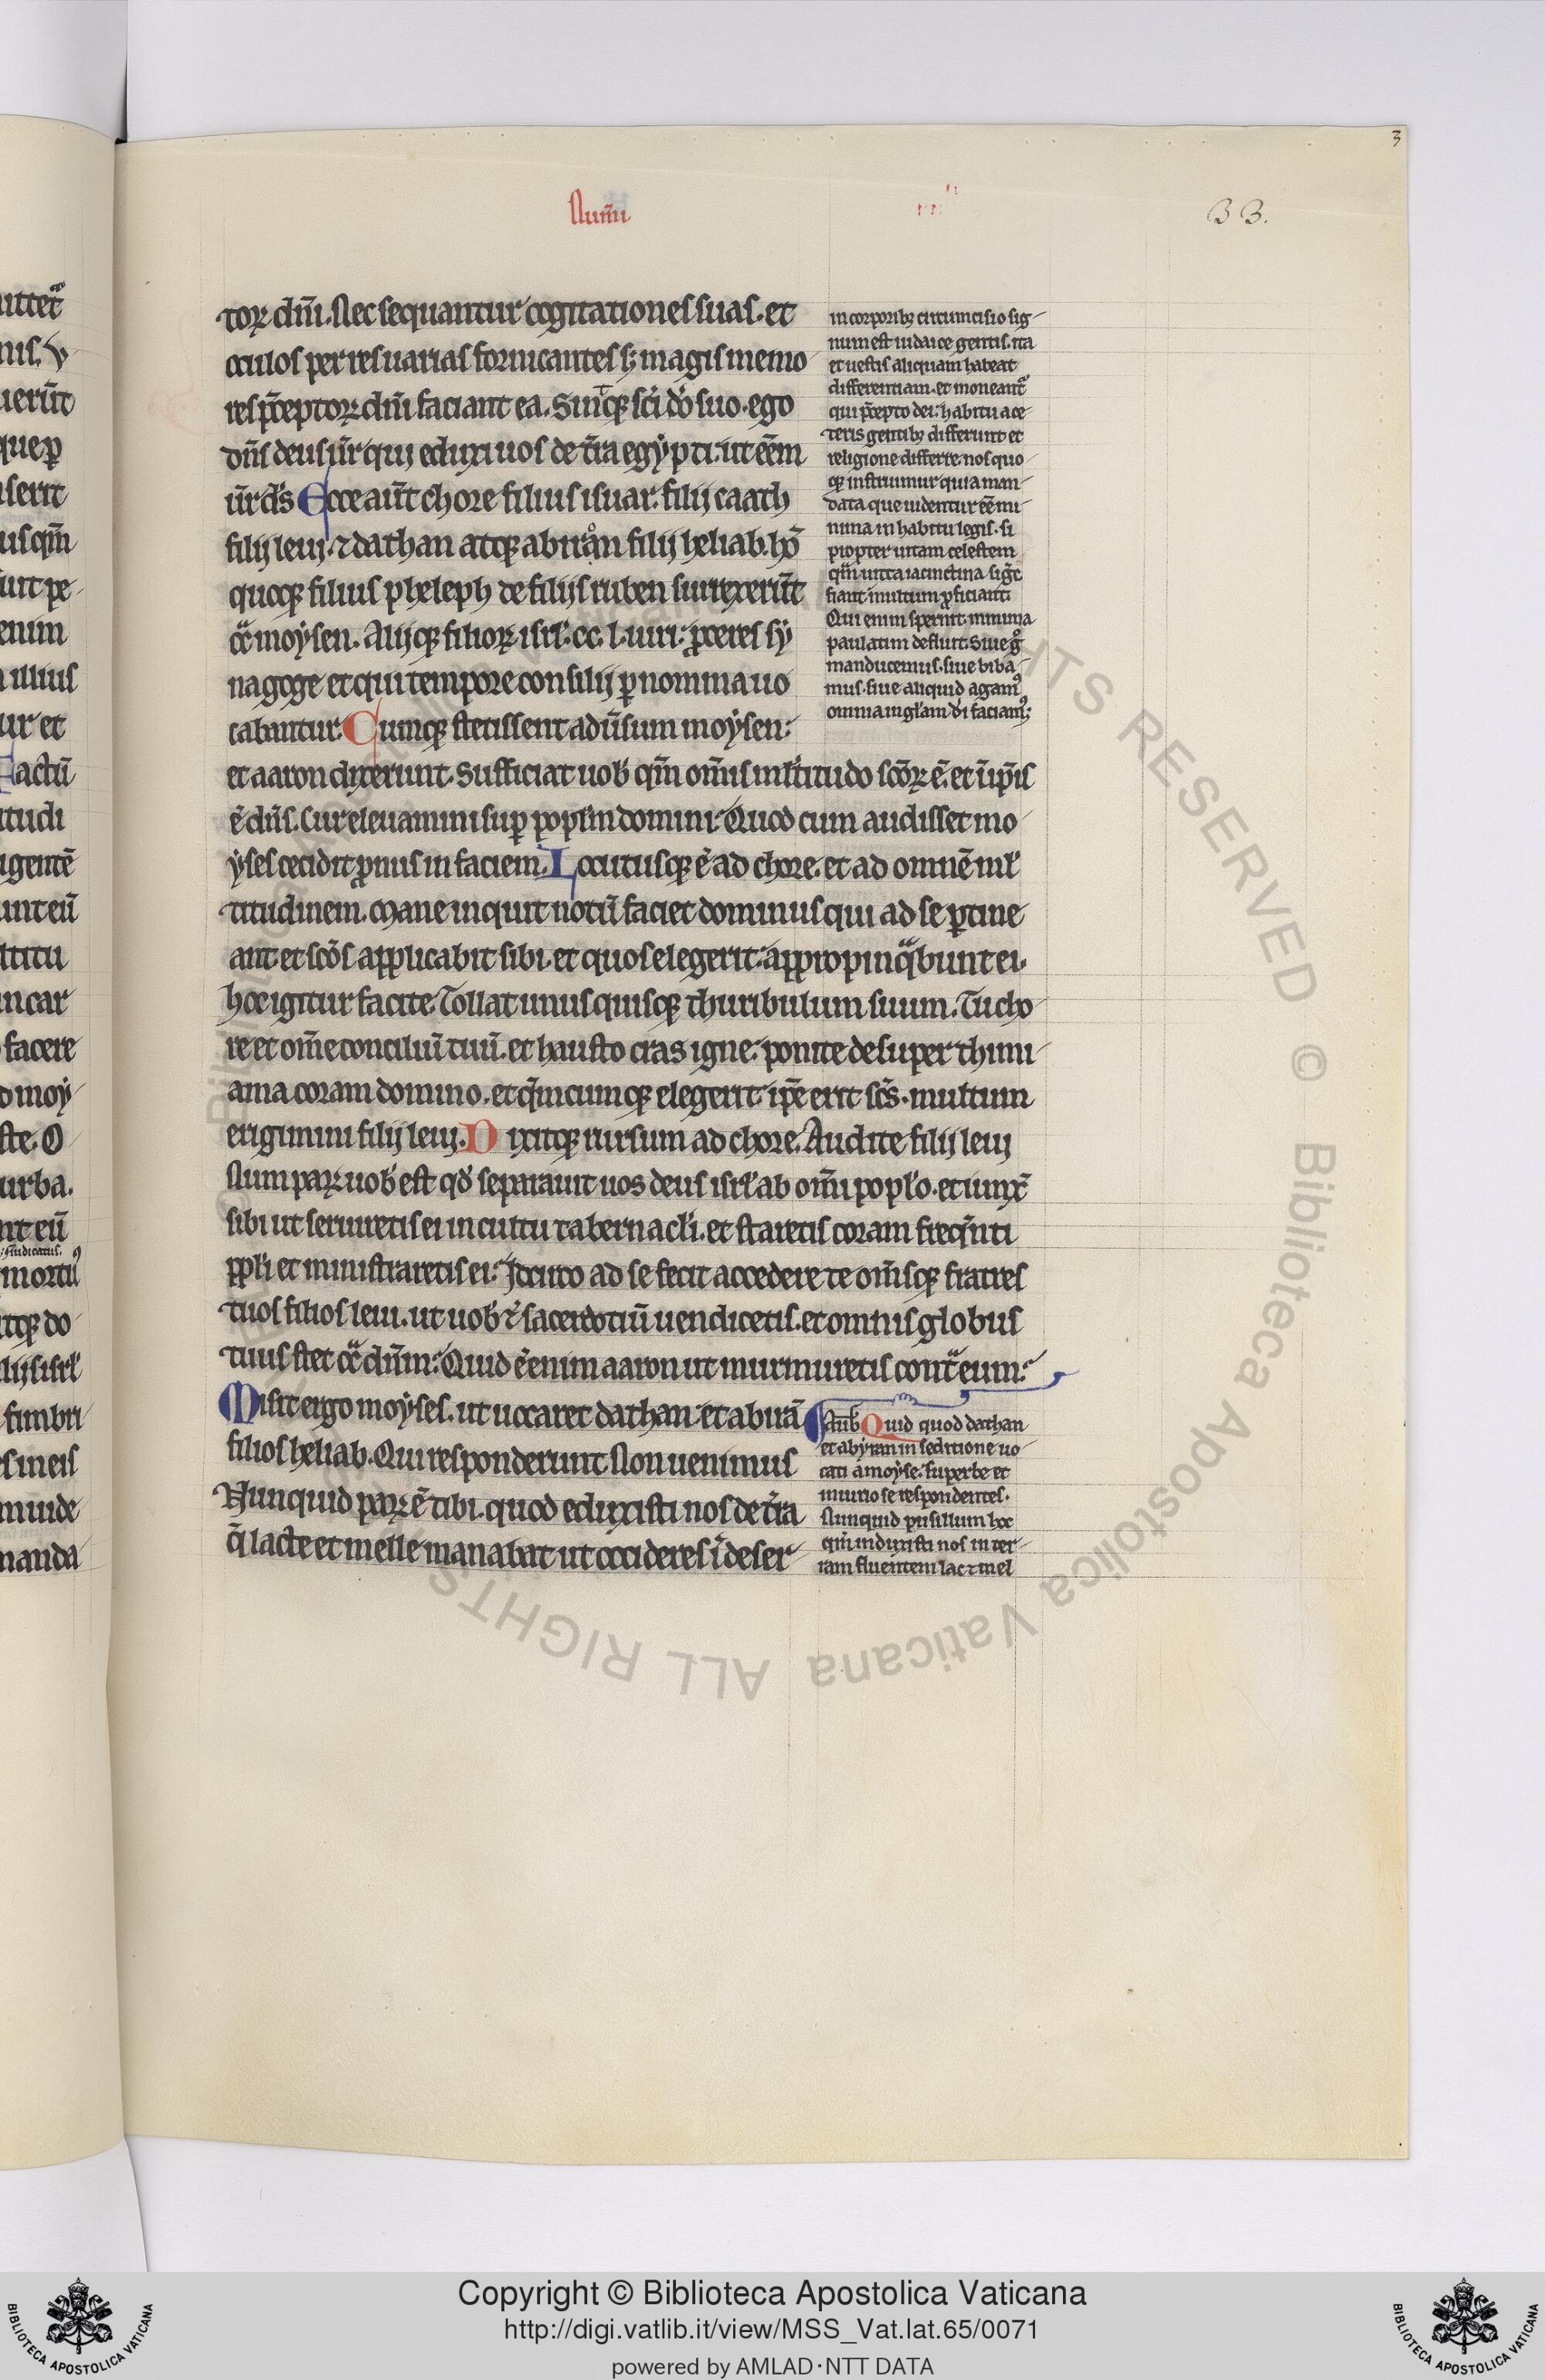 3
Num̄i
33.
toꝝ dn̄i. Nec sequantur cogitationes suas. et
oculos per res uarias fornicantes sꝫ magis memo
res p̄ceptoꝝ dn̄i faciant ea. Sintqꝫ sc̄i do suo. ego
dn̄s deus ur̄ qui eduxi uos de t̄ra egypti. ut eēm
ur̄ ds̄ Ecce aūt chore filius isuar. filij caath
filij leui. ⁊ dathan atqꝫ abiran filij heliab. hō
quoqꝫ filius pheleph de filijs ruben surrexerūt
cͣ moysen. Alijqꝫ filioꝝ isrl̓. cc. l. uiri. ꝓceres sy
nagoge et qui tempore consilij ꝑ nomina uo
cabantur. Cumqꝫ stetissent adūsum moysen.
et aaron dixerunt. Sufficiat uob̓ qm̄ om̄is ml̓titudo sc̄oꝝ ē. et ī ip̄is
ē dn̄s. Cur eleuamini suꝑ popl̓m domini. Quod cum audisset mo
yses cecidit ꝓnus in faciem. Locutusqꝫ ē ad chore. et ad omnē ml̓
titudinem. Mane inquit notū faciet dominus qui ad se ꝑtine
ant et sc̄os applicabit sibi. et quos elegerit. appropinqͣbunt ei.
hoc igitur facite. Tollat unusquisqꝫ thuribulum suum. Tu cho
re et om̄e conciliū tuū. et hausto cras igne. ponite desuper thimi
ama coram domino. et qm̄cumqꝫ elegerit ip̄e erit sc̄s. multum
erigimini filij leuj. Dixitqꝫ rursum ad chore. Audite filij leuj
Num paꝝ uob̓ est qd̓ separauit uos deus isrl̓ ab om̄i popl̓o. et iunx̄
sibi ut seruiretis ei in cultu tabernacl̓i. et staretis coram freqn̄ti
ppl̓i et ministraretis ei. Idcirco ad se fecit accedere te om̄isqꝫ fratres
tuos filios leui. ut uob̓ ⁊ sacerdotiū uendicetis. et omnis globus
tuus stet cͣ dn̄m. Quid ē enim aaron ut murmuretis contͣ eum.
Misit ergo moyses. ut uocaret dathan et abirā
filios heliab. Qui responderunt Non uenimus
Nunquid paꝝ ē tibi. quod eduxisti nos de t̄ra
q̄ lacte et melle manabat ut occideres ī deser
in corporibꝫ circumcisio sig
num est iudaice gentis. ita
et uestis aliquam habeat
differentiam. et moneantͬ
qui p̄cepto dei. habitu a ce
teris gentibꝫ differunt et
religione differre. nos quo
qꝫ instruimur quia man
data que uidentur eē mi
nima in habitu legis. si
propter uitam celestem
qm̄ uitta iacinctina sig̓t
fiant multum ꝓficiant
Qui enim spernit minima
paulatim defluit. Siue g̊
manducemus. siue biba
mus. siue aliquid agamꝰ
omnia in gl̓am di faciamꝰ.
Aūb̓ Quid quod dathan
et abyran in seditione uo
cati a moyse. superbe et
iniuriose respondentes.
Nunquid pusillum hoc
qm̄ induxisti nos in ter
ram fluentem lac ⁊ mel
Copyright © Biblioteca Apostolica Vaticana
http://digi.vatlib.it/view/MSS_Vat.lat.65/0071
powered by AMLAD·NTT DATA
BIBLIOTECA APOSTOLICA VATICANA
BIBLIOTECA APOSTOLICA VATICANA